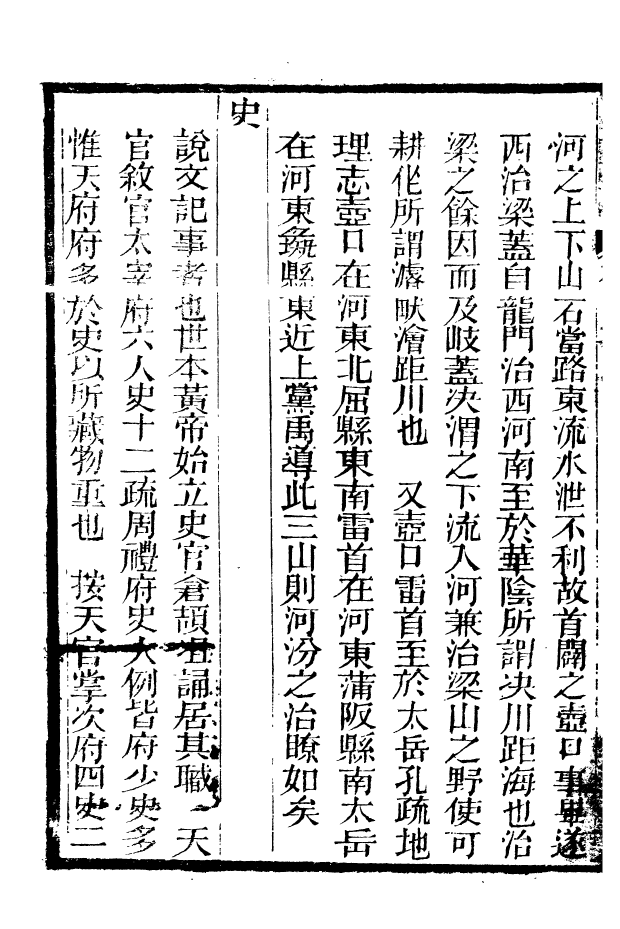 河之上下山石當路東流水泄不利故首闢之壺口事畢遂
西治梁蓋自龍門治西河南至於華陰所謂决川距海也治
梁之餘因而及岐蓋决渭之下流入河兼治梁山之野使可
耕作所謂濬畎澮距川也　又壺口雷首至於太岳孔疏地
理志壺口在河東北屈縣東南雷首在河東蒲阪縣南太岳
在河東彘縣東近上黨禹導此三山則河汾之治瞭如矣
史
說文記事者也世本黃帝始立史官倉頡沮誦居其職　天
官敘官太宰府六人史十二疏周禮府史大例皆府少史多
惟天府府多於史以所藏物重也　按天官掌次府四史二